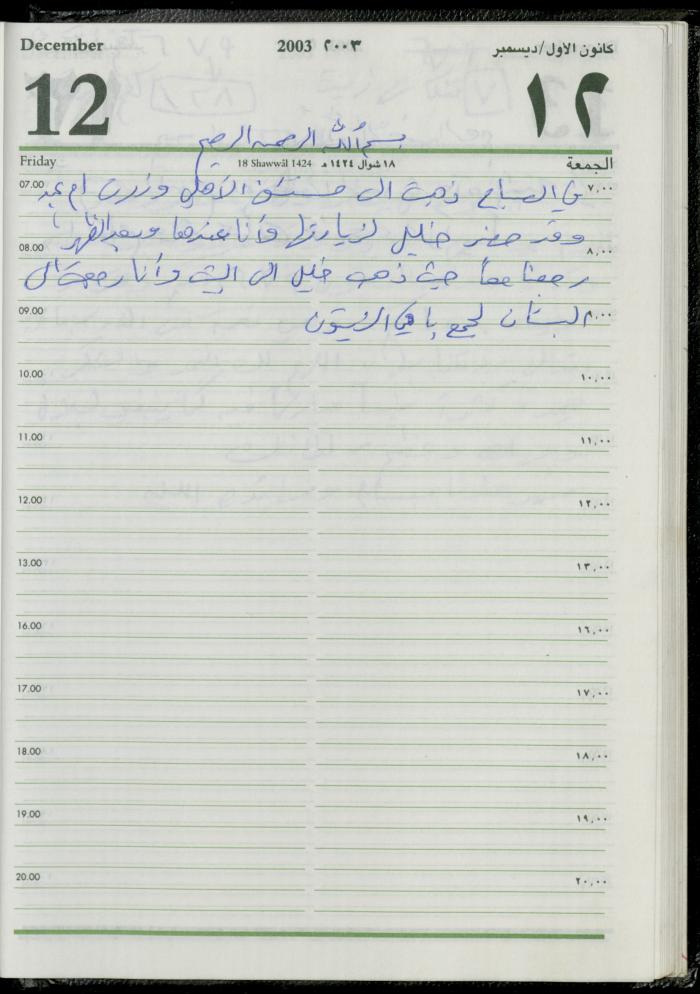 December 2003 ٢٠٠٣ كانون الأول/ديسمبر
12 ١٢
بسم الله الرحمن الرحيم
Friday 18 Shawwâl 1424 ١٨ شوال ١٤٢٤ هـ الجمعة
07.00 ٧,٠٠
في الصباح ذهبت الى مستشفى الأهلي وزرت ام
وقد حضر خليل لزيارتها وأنا عندها وبعد الظهر
08.00 ٨,٠٠
رجعنا معاً حيث ذهب خليل الى البيت وأنا رجعت الى
09.00 ٩,٠٠
البستان لجمع باقي الزيتون
10.00 ١٠,٠٠
11.00 ١١,٠٠
12.00 ١٢,٠٠
13.00 ١٣,٠٠
16.00 ١٦,٠٠
17.00 ١٧,٠٠
18.00 ١٨,٠٠
19.00 ١٩,٠٠
20.00 ٢٠,٠٠